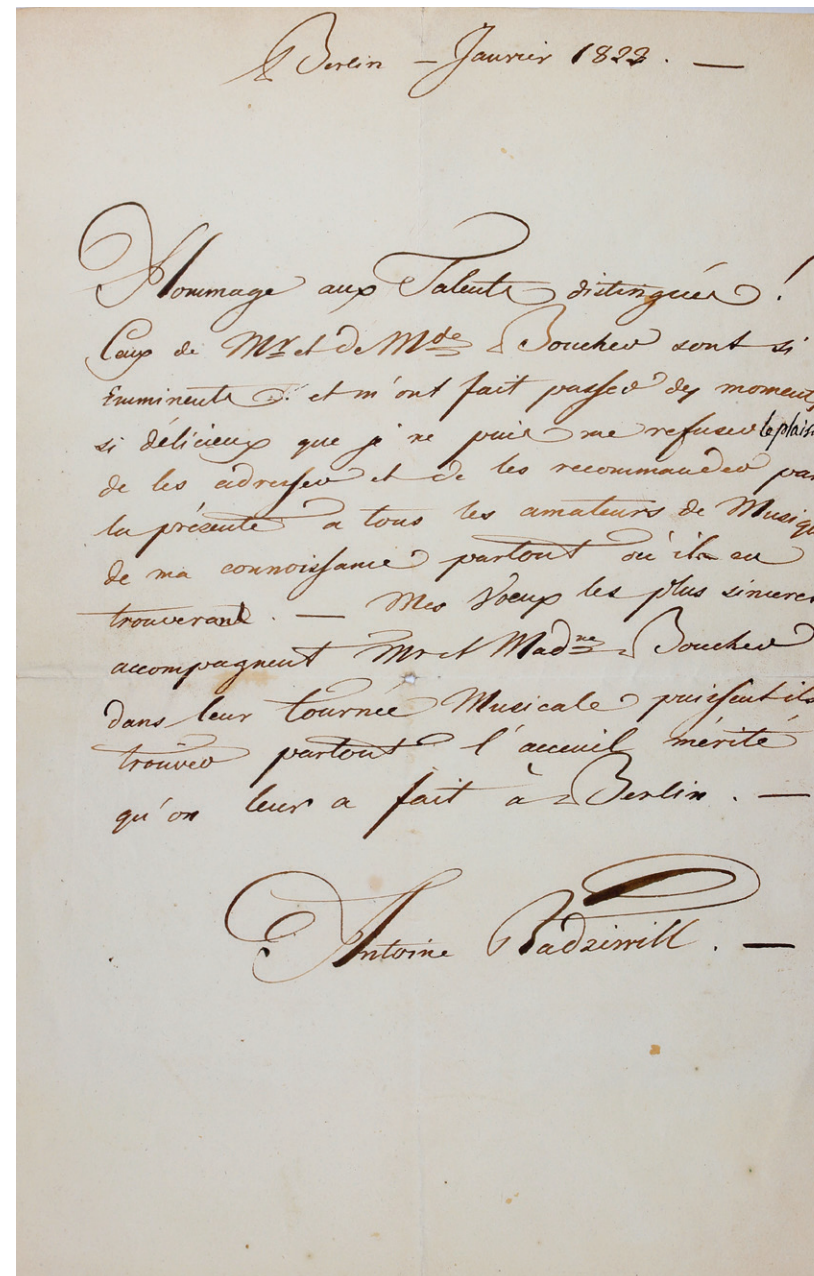 Berlin – Janvier 1822. —
Hommage aux Talents distingués!
Ceux de Mr et de Mde Boucher sont si
Emminents et m'ont fait passer des moments
si délicieux que je ne puis me refuser le plaisir
de les adresser et de les recommander par
la présente a tous les amateurs de Musique
de ma connoissance partout où ils en
trouveront. — Mes Voeux les plus sinceres
accompagnent Mr et Madme Boucher
dans leur tournée Musicale puissent ils
trouver partout l'acceuil mérité
qu'on leur a fait à Berlin. —
Antoine Radziwill. —